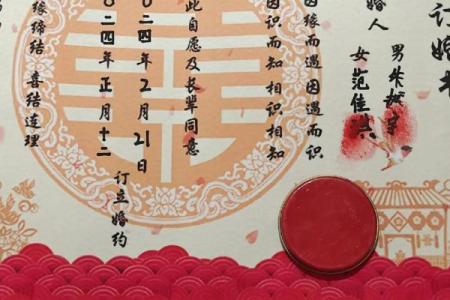 订婚
婚人
男朱
女范佳
因缘而遇因遇而识
因识而知相识相知
此自愿及长辈同意
〇二四年2月21日
〇二四年正月十二
订立婚约
缘缔结 喜结连理